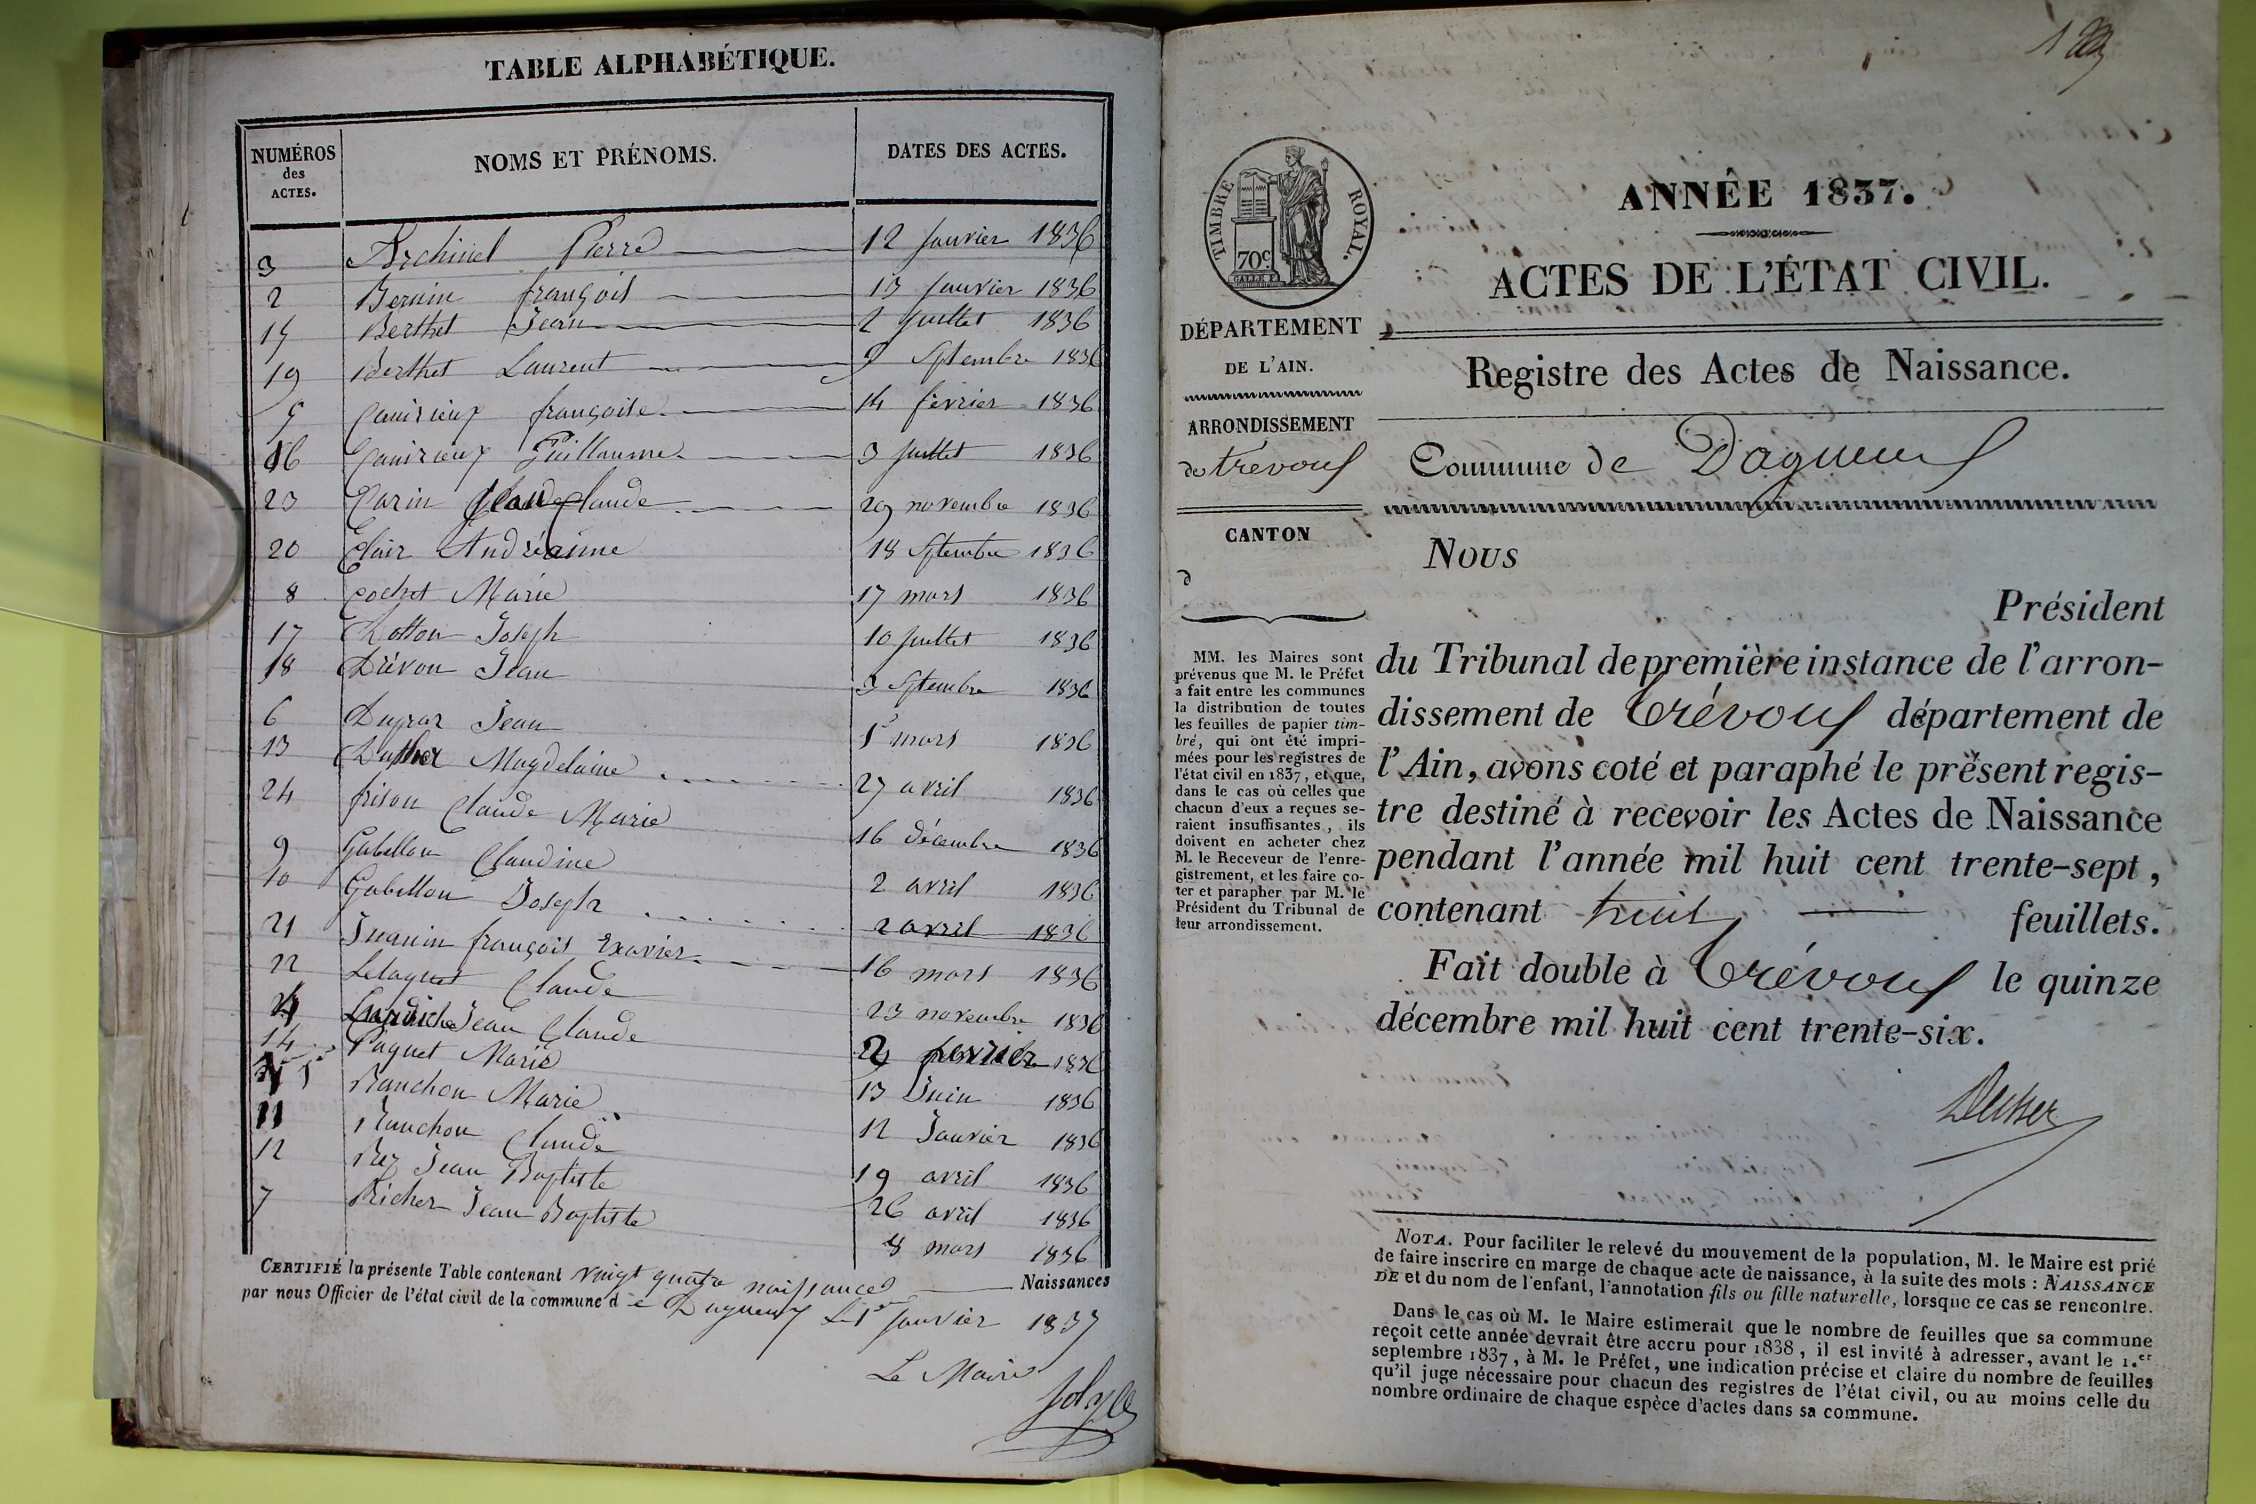 TABLE ALPHABÉTIQUE.
NUMÉROS des ACTES.
NOMS ET PRÉNOMS.
DATES DES ACTES.
3 Archinel Pierre 12 Janvier 1836
2 Bernin françois 13 Janvier 1836
Berthet Jean 2 Juillet 1836
19 Berthet Laurent 9 Septembre 1836
françoise 14 février 1836
16 Guillaume 3 Juillet 1836
23 Carin Claude 29 novembre 1836
20 Clair Andréanne 18 Septembre 1836
8 Cochet Marie 17 mars 1836
17 Cotton Joseph 10 Juillet 1836
18 Drévon Jean 3 Septembre 1836
6 Jean 1er mars 1836
13 Magdelaine 27 avril 1836
24 frison Claude Marie 16 décembre 1836
9 Gabillon Claudine 2 avril 1836
10 Gabillon Joseph 2 avril 1836
21 Juanin françois Exavier 16 mars 1836
22 Claude 23 novembre 1836
4 Jean Claude 2 1836
14 Paquet Marie 13 Juin 1836
Ranchon Marie 12 Janvier 1836
11 Ranchon Claude 19 avril 1836
12 Rey Jean Baptiste 26 avril 1836
7 Richer Jean Baptiste 8 mars 1836
CERTIFIÉ la présente Table contenant vingt quatre naissances Naissances
par nous Officier de l'état civil de la commune de Dagneux Le 1er Janvier 1837
Le Maire
ANNÉE 1837.
ACTES DE L'ÉTAT CIVIL.
TIMBRE ROYAL.
70c
DÉPARTEMENT
DE L'AIN.
ARRONDISSEMENT
de trévoux
CANTON
d
MM. les Maires sont
prévenus que M. le Préfet
a fait entre les communes
la distribution de toutes
les feuilles de papier tim-
bré, qui ont été impri-
mées pour les registres de
l'état civil en 1837, et que,
dans le cas où celles que
chacun d'eux a reçues se-
raient insuffisantes, ils
doivent en acheter chez
M. le Receveur de l'enre-
gistrement, et les faire co-
ter et parapher par M. le
Président du Tribunal de
leur arrondissement.
Registre des Actes de Naissance.
Commune de Dagneux
NOUS
Président
du Tribunal de première instance de l'arron-
dissement de Trévoux département de
l'Ain, avons coté et paraphé le présent regis-
tre destiné à recevoir les Actes de Naissance
pendant l'année mil huit cent trente-sept,
contenant huit feuillets.
Fait double à Trévoux le quinze
décembre mil huit cent trente-six.
NOTA. Pour faciliter le relevé du mouvement de la population, M. le Maire est prié
de faire inscrire en marge de chaque acte de naissance, à la suite des mots : NAISSANCE
DE et du nom de l'enfant, l'annotation fils ou fille naturelle, lorsque ce cas se rencontre.
Dans le cas où M. le Maire estimerait que le nombre de feuilles que sa commune
reçoit cette année devrait être accru pour 1838, il est invité à adresser, avant le 1.er
septembre 1837, à M. le Préfet, une indication précise et claire du nombre de feuilles
qu'il juge nécessaire pour chacun des registres de l'état civil, ou au moins celle du
nombre ordinaire de chaque espèce d'actes dans sa commune.